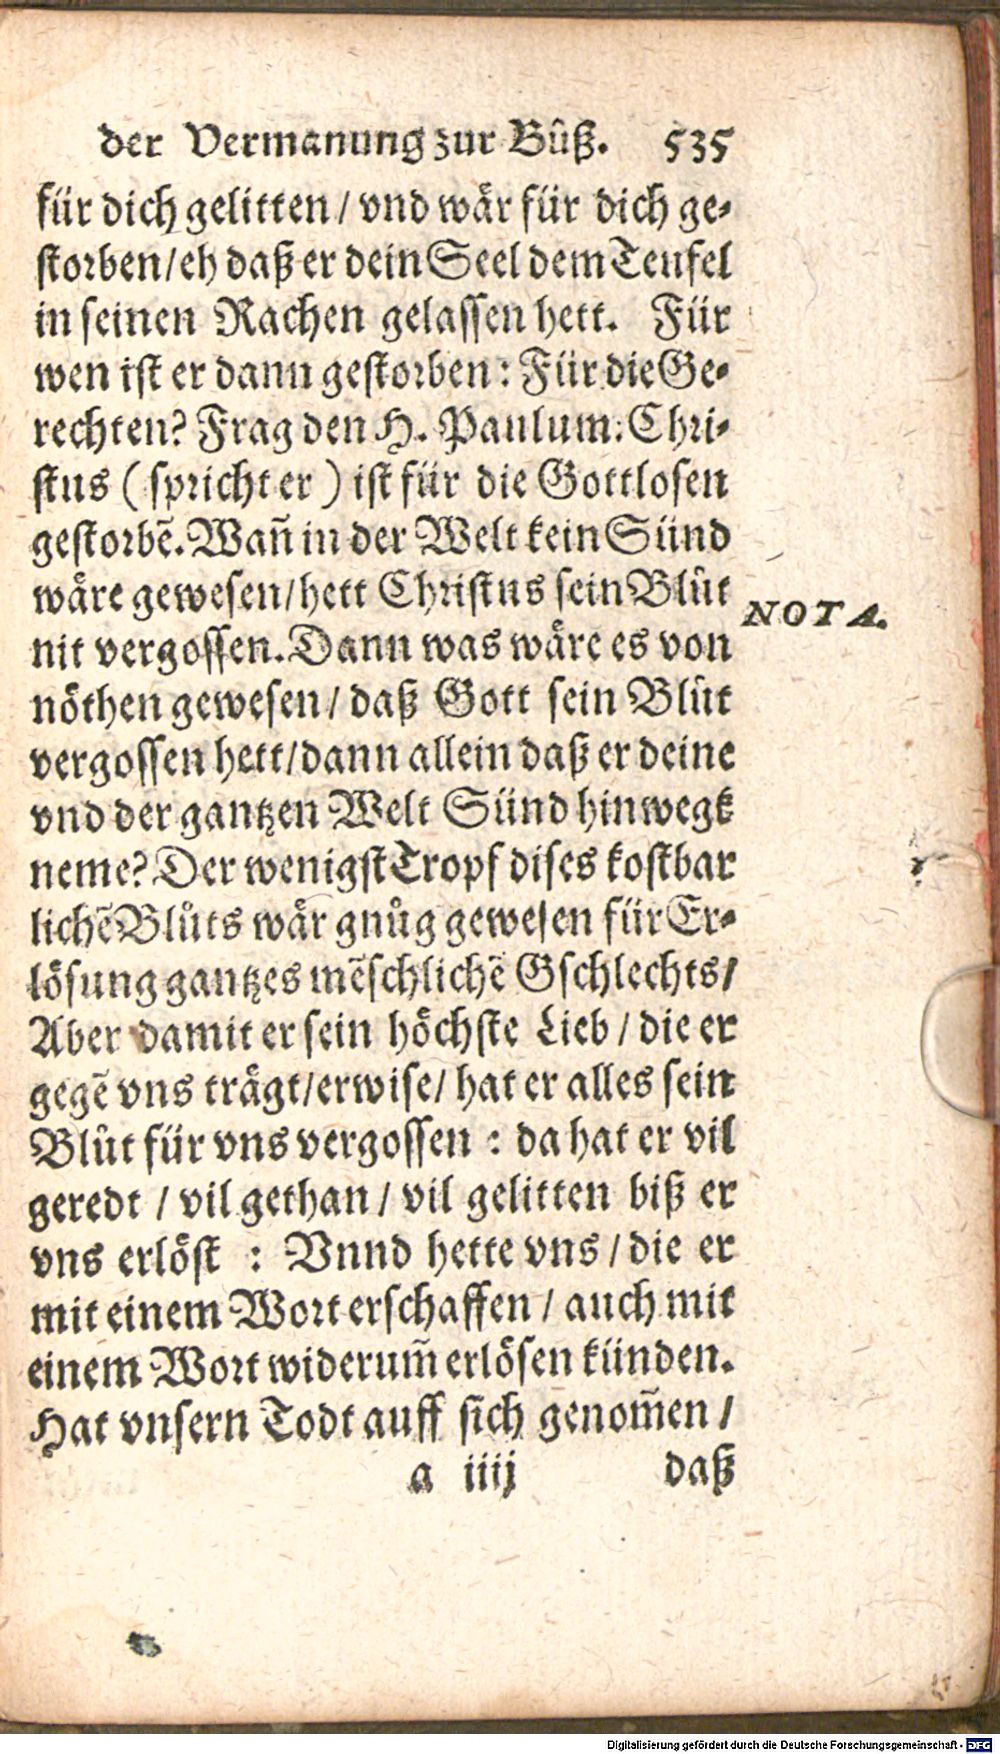 der Vermanung zur Bůß. 535
für dich gelitten / vnd wär für dich ge-
storben / eh daß er dein Seel dem Teufel
in seinen Rachen gelassen hett. Für
wen ist er dann gestorben: Für die Ge-
rechten? Frag den H. Paulum: Chri-
stus ( spricht er ) ist für die Gottlosen
gestorbẽ. Wañ in der Welt kein Sünd
wäre gewesen / hett Christus sein Blůt
NOTA.
nit vergossen. Dann was wäre es von
nöthen gewesen / daß Gott sein Blůt
vergossen hett / dann allein daß er deine
vnd der gantzen Welt Sünd hinwegk
neme? Der wenigst Tropf dises kostbar
lichẽ Blůts wär gnůg gewesen für Er-
lösung gantzes mẽschlichẽ Gschlechts /
Aber damit er sein höchste Lieb / die er
gegẽ vns trägt / erwise / hat er alles sein
Blůt für vns vergossen : da hat er vil
geredt / vil gethan / vil gelitten biß er
vns erlöst : Vnnd hette vns / die er
mit einem Wort erschaffen / auch mit
einem Wort widerum̃ erlösen künden.
Hat vnsern Todt auff sich genom̃en /
a iiij daß
Digitalisierung gefördert durch die Deutsche Forschungsgemeinschaft - DFG